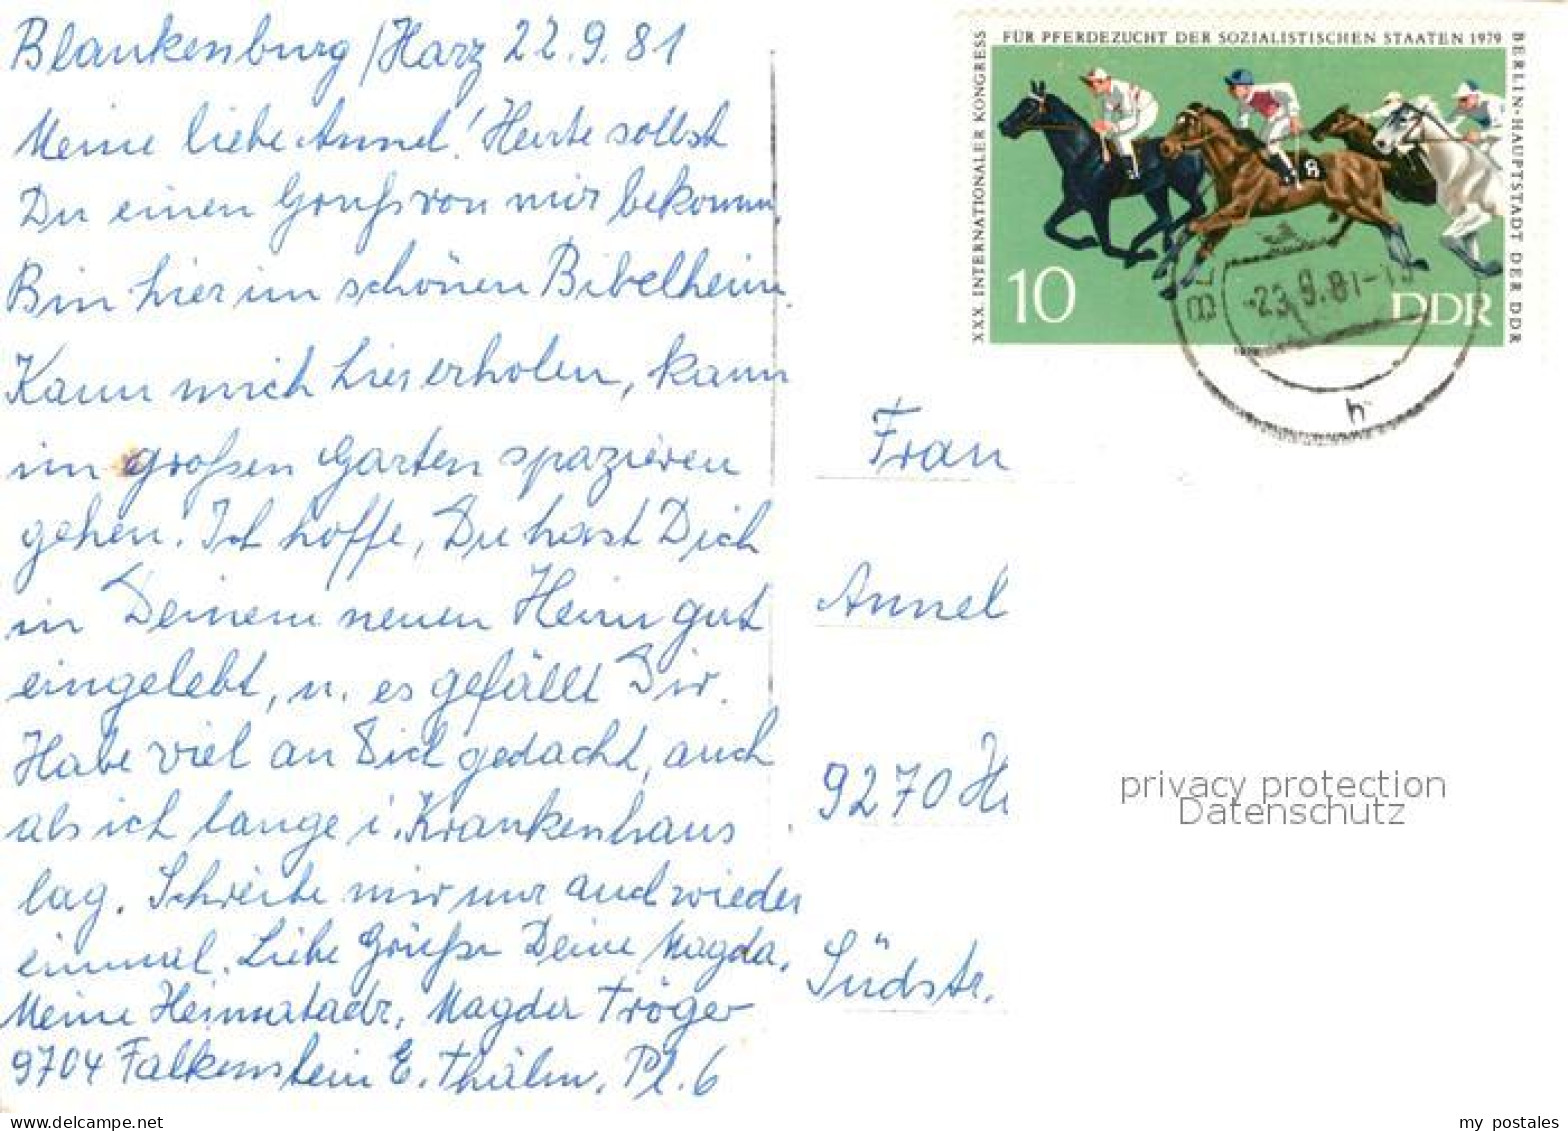 Blankenburg/Harz 22.9.81
Meine liebe Annel! Heute sollst
Du einen Gruß von mir bekomm.
Bin hier im schönen Bibelheim.
Kann mich hier erholen, kann
im großen Garten spazieren
gehen. Ich hoffe, Du hast Dich
in Deinem neuen Heim gut
eingelebt, u. es gefällt Dir.
Habe viel an Dich gedacht, auch
als ich lange i. Krankenhaus
lag. Schreibe mir nur auch wieder
einmal. Liebe Grüße Deine Magda.
Meine Heimatadr. Magda Tröger
9704 Falkenstein E. Thälm. Pl. 6
XXX. INTERNATIONALER KONGRESS
FÜR PFERDEZUCHT DER SOZIALISTISCHEN STAATEN 1979
BERLIN·HAUPTSTADT DER DDR
8
10
DDR
BL
-23.9.81-1
h
Frau
Annel
9270 H
Südstr.
privacy protection
Datenschutz
my postales